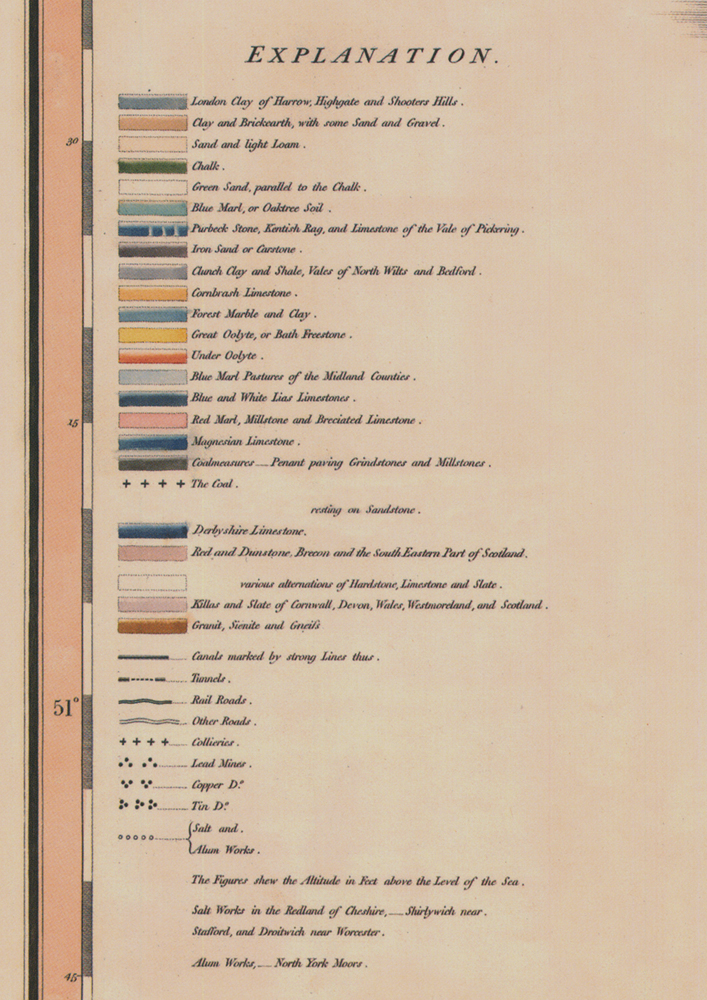 EXPLANATION.
London Clay of Harrow, Highgate and Shooters Hills.
Clay and Brickearth, with some Sand and Gravel.
30
Sand and light Loam.
Chalk.
Green Sand, parallel to the Chalk.
Blue Marl, or Oaktree Soil.
Purbeck Stone, Kentish Rag, and Limestone of the Vale of Pickering.
Iron Sand or Carstone.
Clunch Clay and Shale, Vales of North Wilts and Bedford.
Cornbrash Limestone.
Forest Marble and Clay.
Great Oolyte, or Bath Freestone.
Under Oolyte.
Blue Marl Pastures of the Midland Counties.
Blue and White Lias Limestones.
15
Red Marl, Millstone and Breciated Limestone.
Magnesian Limestone.
Coalmeasures — Penant paving Grindstones and Millstones.
++++ The Coal.
resting on Sandstone.
Derbyshire Limestone.
Red and Dunstone, Brecon and the South Eastern Part of Scotland.
various alternations of Hardstone, Limestone and Slate.
Killas and Slate of Cornwall, Devon, Wales, Westmoreland, and Scotland.
Granit, Sienite and Gneiſs
Canals marked by strong Lines thus.
Tunnels.
51°
Rail Roads.
Other Roads.
++++ Collieries.
Lead Mines.
Copper Dº
Tin Dº
Salt and.
Alum Works.
The Figures shew the Altitude in Feet above the Level of the Sea.
Salt Works in the Redland of Cheshire, — Shirlywich near.
Stafford, and Droitwich near Worcester.
Alum Works, — North York Moors.
45